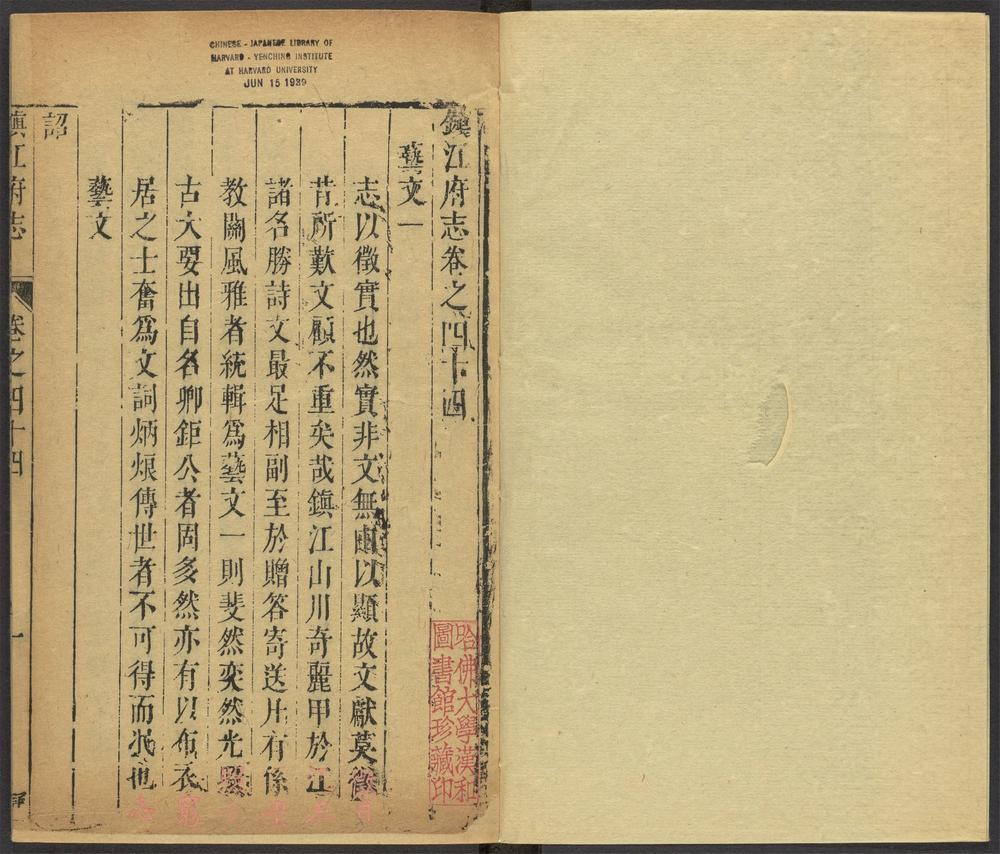 CHINESE - JAPANESE LIBRARY OF
HARVARD - YENCHING INSTITUTE
AT HARVARD UNIVERSITY
JUN 15 1939
鎮江府志卷之四十四
藝文一
志以徵實也然實非文無由以顯故文獻莫徵
昔所歎文顧不重矣哉鎮江山川奇麗甲於江
諸名勝詩文最足相副至於贈答寄送凡有係
教關風雅者統輯爲藝文一則斐然奕然光
古大要出自名卿鉅公者固多然亦有以布衣
居之士奮爲文詞炳烺傳世者不可得而泯也
藝文
詔
鎮江府志
卷之四十四
一
哈佛大學漢和
圖書館珍藏印